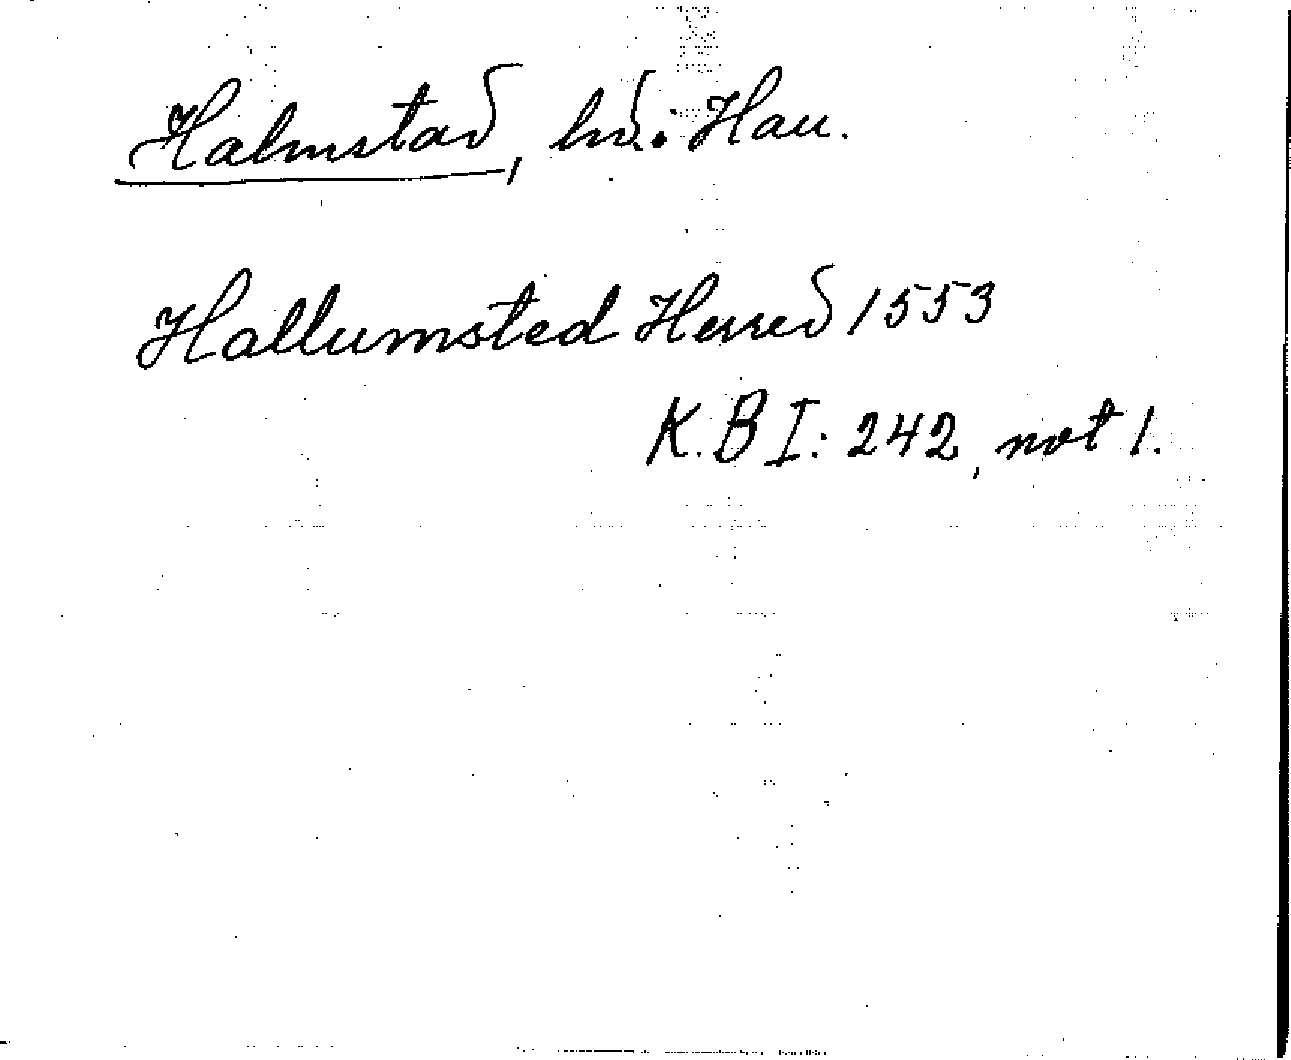 Halmstad, hd. i Hall.
Hallumsted Herred 1553
K. B I: 242, not 1.